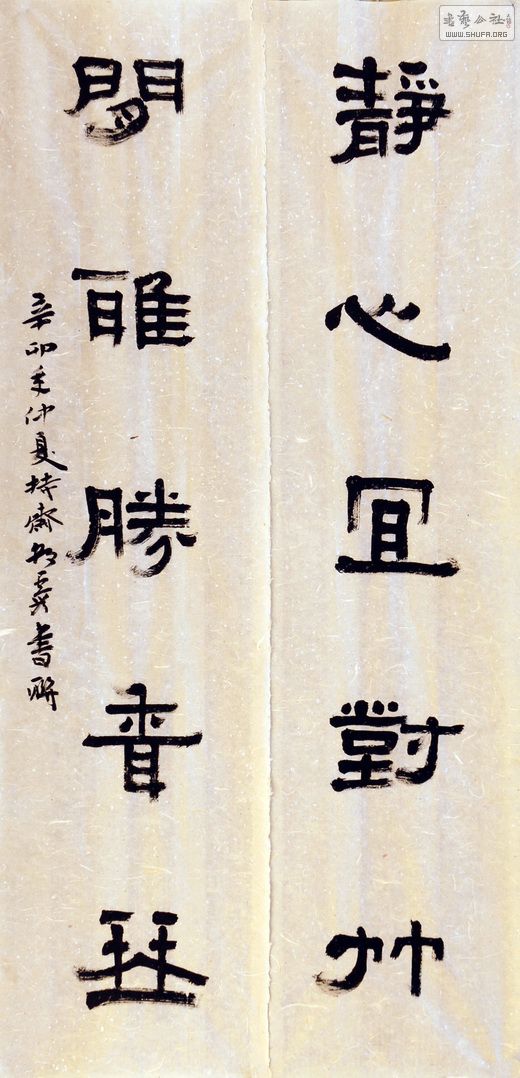 書藝公社
WWW.SHUFA.ORG
靜心宜對竹
閒雅勝琴
辛卯年仲夏持齋書聯